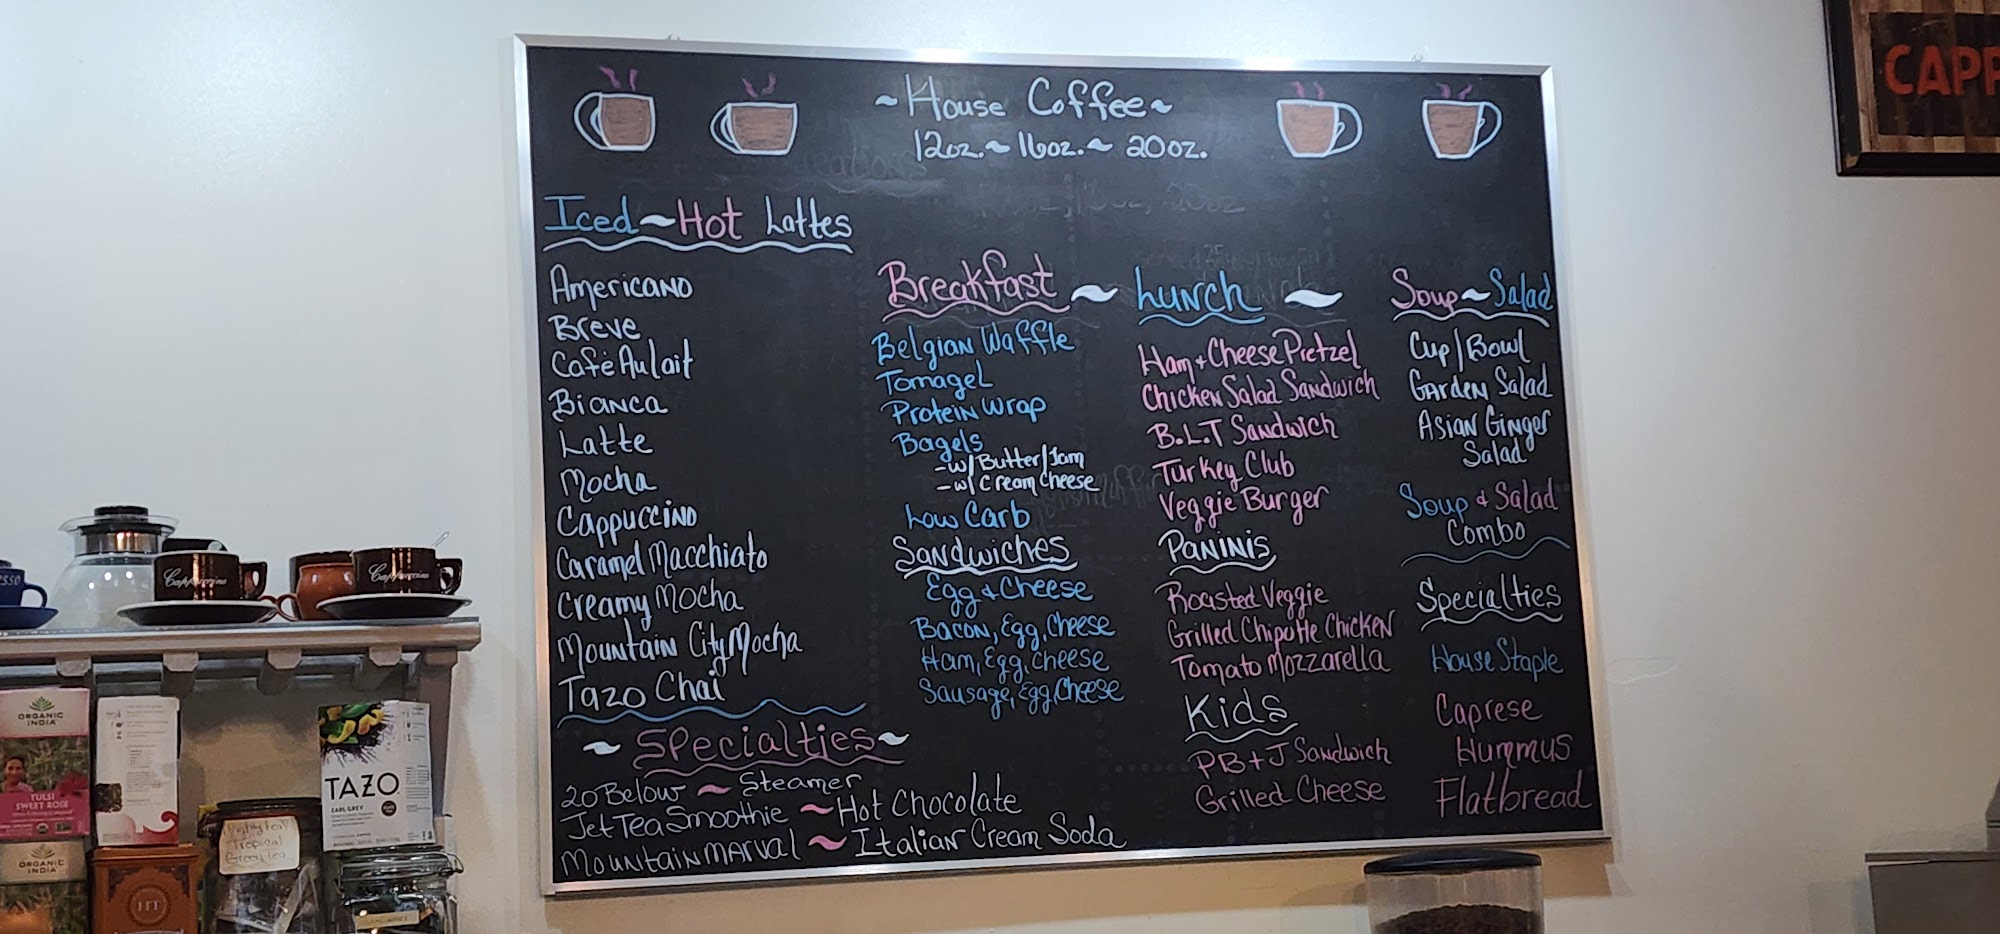 ~House Coffee~
12oz.~16oz.~ 20oz.
Iced~Hot Lattes
Americano
Breve
Cafè Au lait
Bianca
Latte
Mocha
Cappuccino
Caramel Macchiato
Creamy Mocha
Mountain City Mocha
Tazo Chai
~Specialties~
20 Below ~ Steamer
Jet Tea Smoothie ~ Hot Chocolate
Mountain Marval ~ Italian Cream Soda
Breakfast ~
Belgian Waffle
Tomagel
Protein Wrap
Bagels
-w/Butter/Jam
-w/Cream Cheese
Low Carb
Sandwiches
Egg & Cheese
Bacon, Egg, Cheese
Ham, Egg, Cheese
Sausage, Egg, Cheese
Lunch ~
Ham + Cheese Pretzel
Chicken Salad Sandwich
B.L.T Sandwich
Turkey Club
Veggie Burger
Paninis
Roasted Veggie
Grilled Chipotle Chicken
Tomato Mozzarella
Kids
PB+J Sandwich
Grilled Cheese
Soup~Salad
Cup/Bowl
Garden Salad
Asian Ginger
Salad
Soup & Salad
Combo
Specialties
House Staple
Caprese
Hummus
Flatbread
CAPP
Cappuccino
Cappuccino
ORGANIC
INDIA
TULSI
SWEET ROSE
ORGANIC
INDIA
TAZO
EARL GREY
Tropical
Green Tea
HT